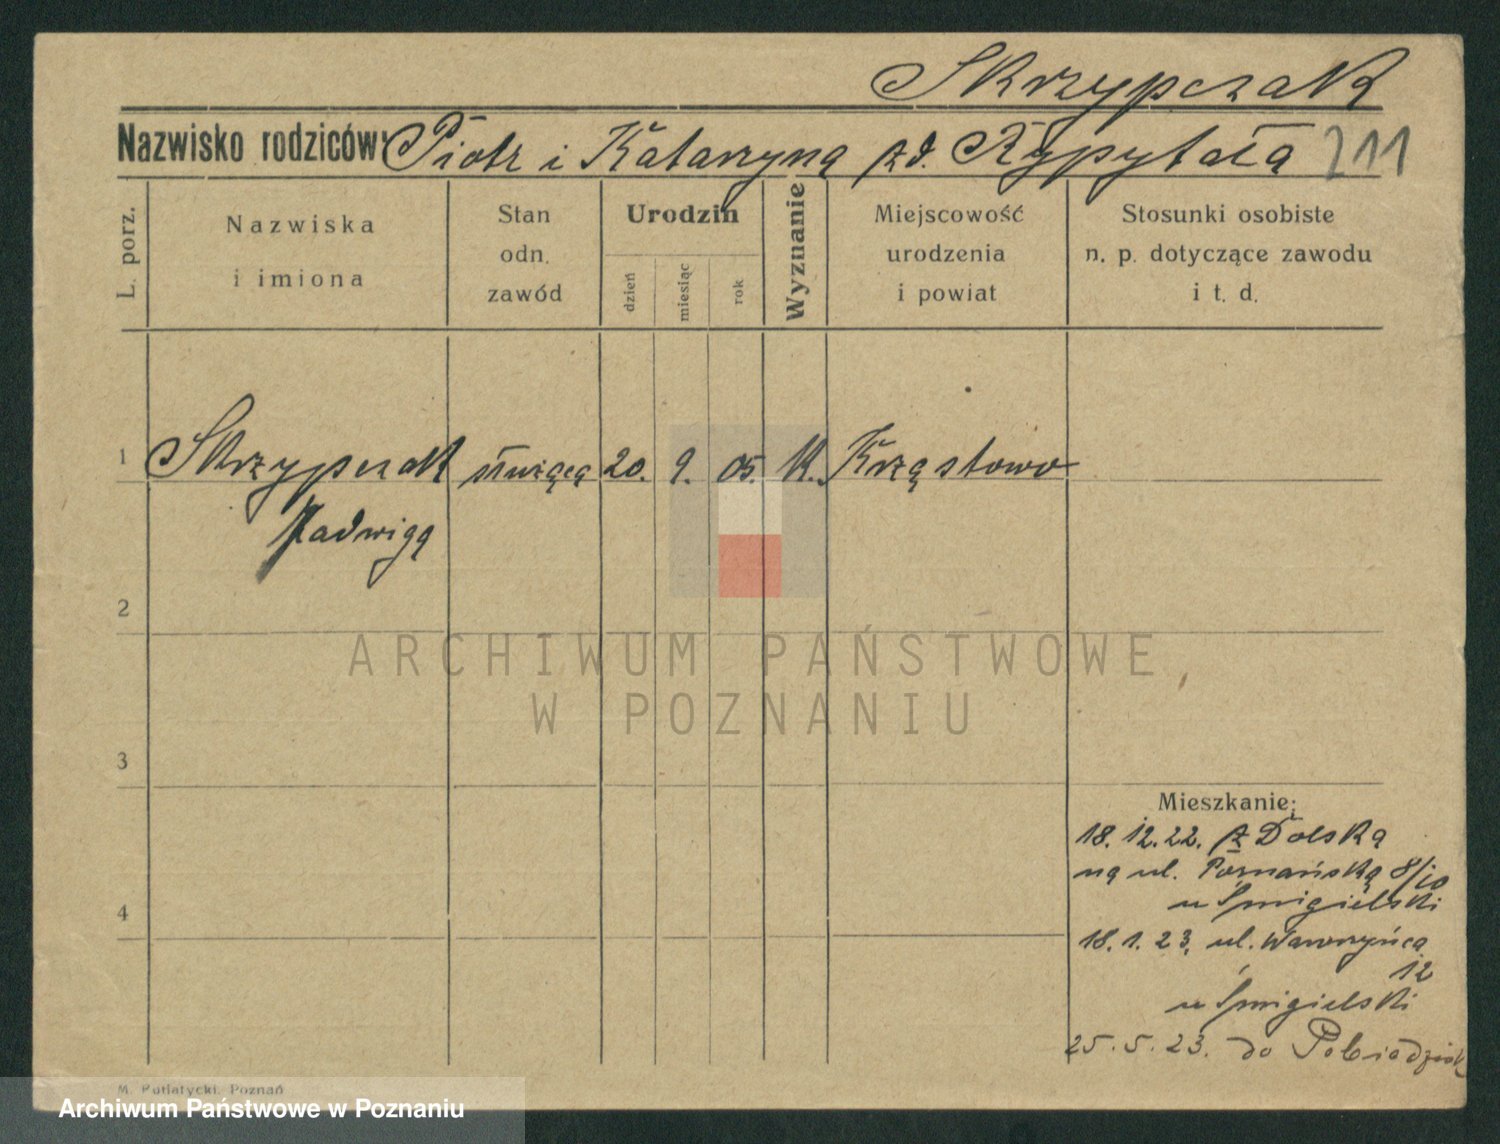 Skrzypczak
Nazwisko rodziców: Piotr i Katarzyna zd. 211
L. porz.
Nazwiska
i imiona
Stan
odn.
zawód
Urodzin
dzień
miesiąc
rok
Wyznanie
Miejscowość
urodzenia
i powiat
Stosunki osobiste
n. p. dotyczące zawodu
i t. d.
1 Skrzypczak służąca 20. 9. 05. K. Krząstowo
Jadwiga
2
ARCHIWUM PAŃSTWOWE
W POZNANIU
3
Mieszkanie:
18. 12. 22. z Dolska
na ul. Poznańska 8/10
u Śmigielski
4
18. 1. 23. ul. Wawrzyńca
12
u Śmigielski
25. 5. 23. do
M. Putiatycki, Poznań
Archiwum Państwowe w Poznaniu